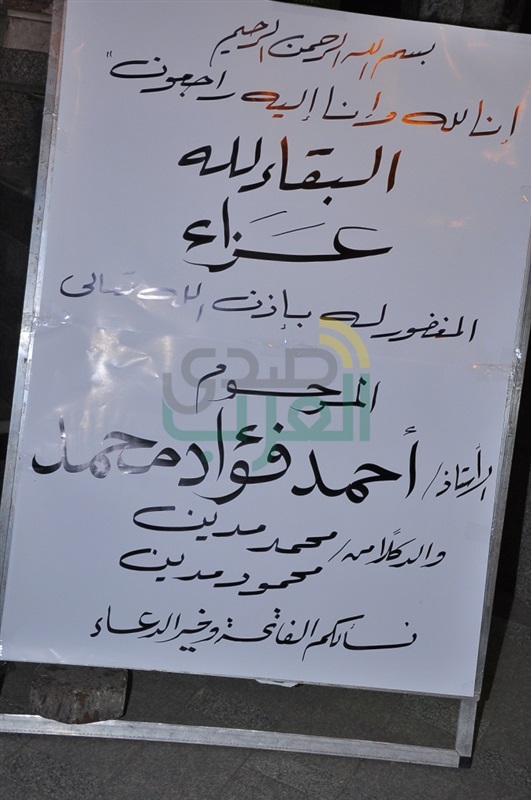 بسم الله الرحمن الرحيم
إنا لله وإنا إليه راجعون"
البقاء لله
عَزَاء
المغفور له بإذن الله تعالى
المرحوم
الأستاذ/ أحمد فؤاد محمد
والد كلًا من/ محمد مدين
محمود مدين
نسألكم الفاتحة وخير الدعاء
صدى العرب